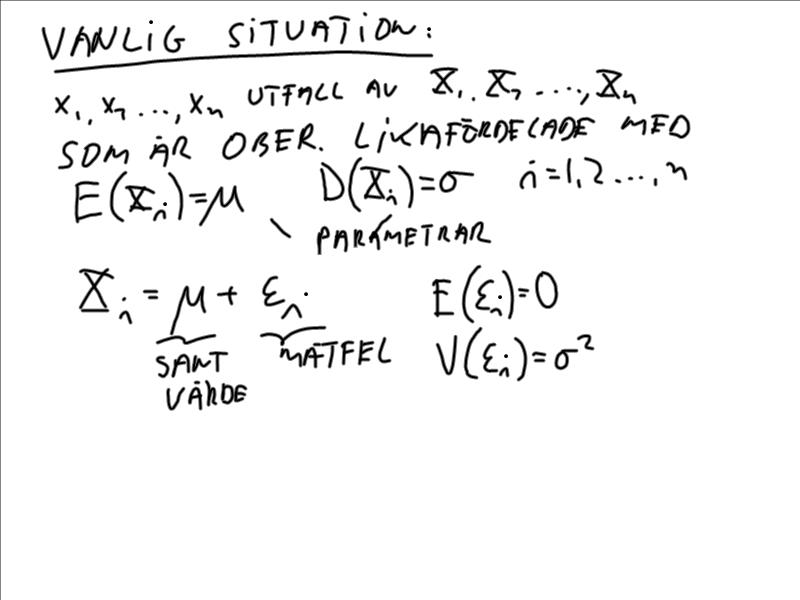 VANLIG SITUATION:
x₁, x₂ ..., xₙ UTFALL AV X₁, X₂ ...., Xₙ
SOM ÄR OBER. LIKAFÖRDELADE MED
E(Xᵢ)=μ D(Xᵢ)=σ i=1,2 ..., n
PARAMETRAR
Xᵢ = μ + εᵢ E(εᵢ)=0
SANT MÄTFEL V(εᵢ)=σ²
VÄRDE